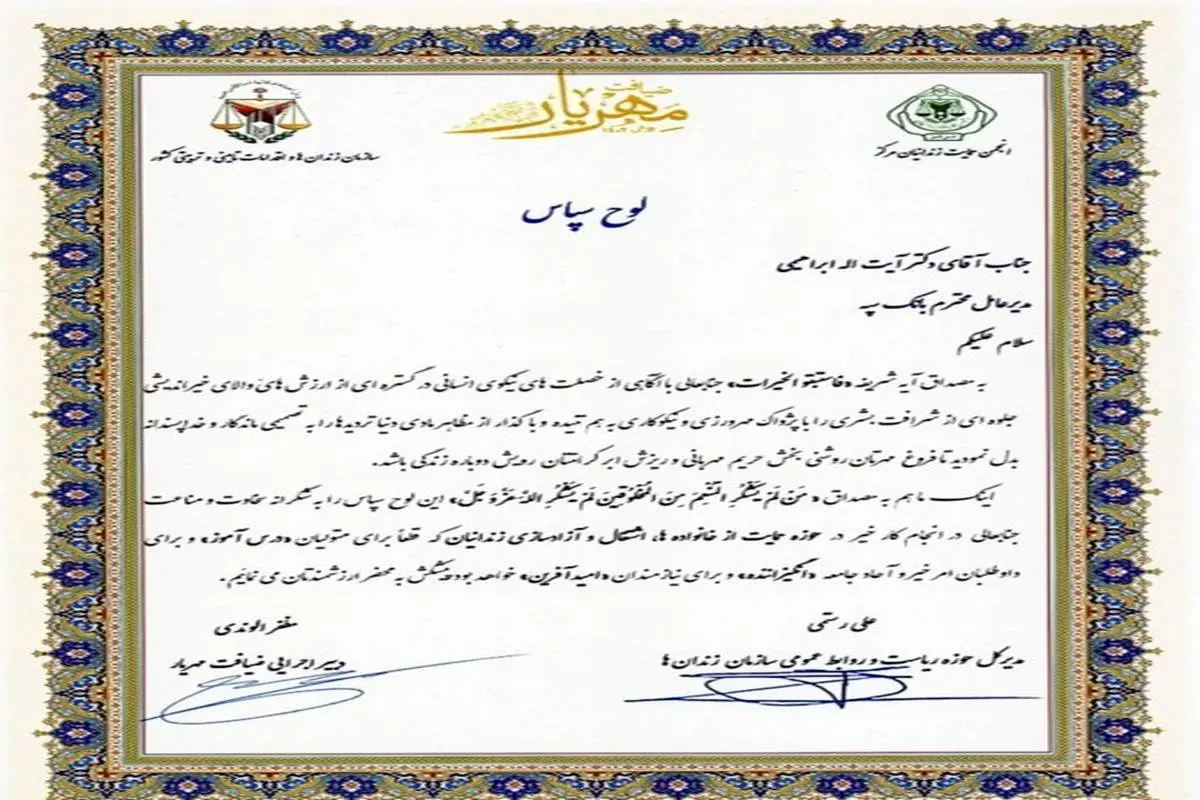 ضیافت
مهریار
سازمان زندان ها و اقدامات تأمینی و تربیتی کشور
انجمن حمایت زندانیان مرکز
لوح سپاس
جناب آقای دکتر آیت اله ابراهیمی
مدیرعامل محترم بانک سپه
سلام علیکم
به مصداق آیه شریفه «فاستبقو الخیرات» جنابعالی با آگاهی از خصلت های نیکوی انسانی در گستره ای از ارزش های والای خیراندیشی
جلوه ای از شرافت بشری را با پژواک مهرورزی و نیکوکاری به هم تنیده و با گذار از مظاهر مادی دنیا تردیدها را به تصمیمی ماندگار و خداپسندانه
بدل نمودید تا فروغ مهرتان روشنی بخش حریم مهربانی و ریزش ابر کرامتتان رویش دوباره زندگی باشد.
اینک ما هم به مصداق «مَن لَم یَشکُرِ المُنعِمَ مِنَ المَخلوقینَ لَم یَشکُرِ اللهَ عَزَّ وَ جَلَّ» این لوح سپاس را به شکرانه سخاوت و مناعت
جنابعالی در انجام کار خیر در حوزه حمایت از خانواده ها، اشتغال و آزادسازی زندانیان که قطعاً برای متولیان «درس آموز» و برای
داوطلبان امر خیر و آحاد جامعه «انگیزاننده» و برای نیازمندان «امیدآفرین» خواهد بود پیشکش به محضر ارزشمندتان می نمائیم.
علی رستمی
مظفر الوندی
مدیرکل حوزه ریاست و روابط عمومی سازمان زندان ها
دبیر اجرایی ضیافت مهریار